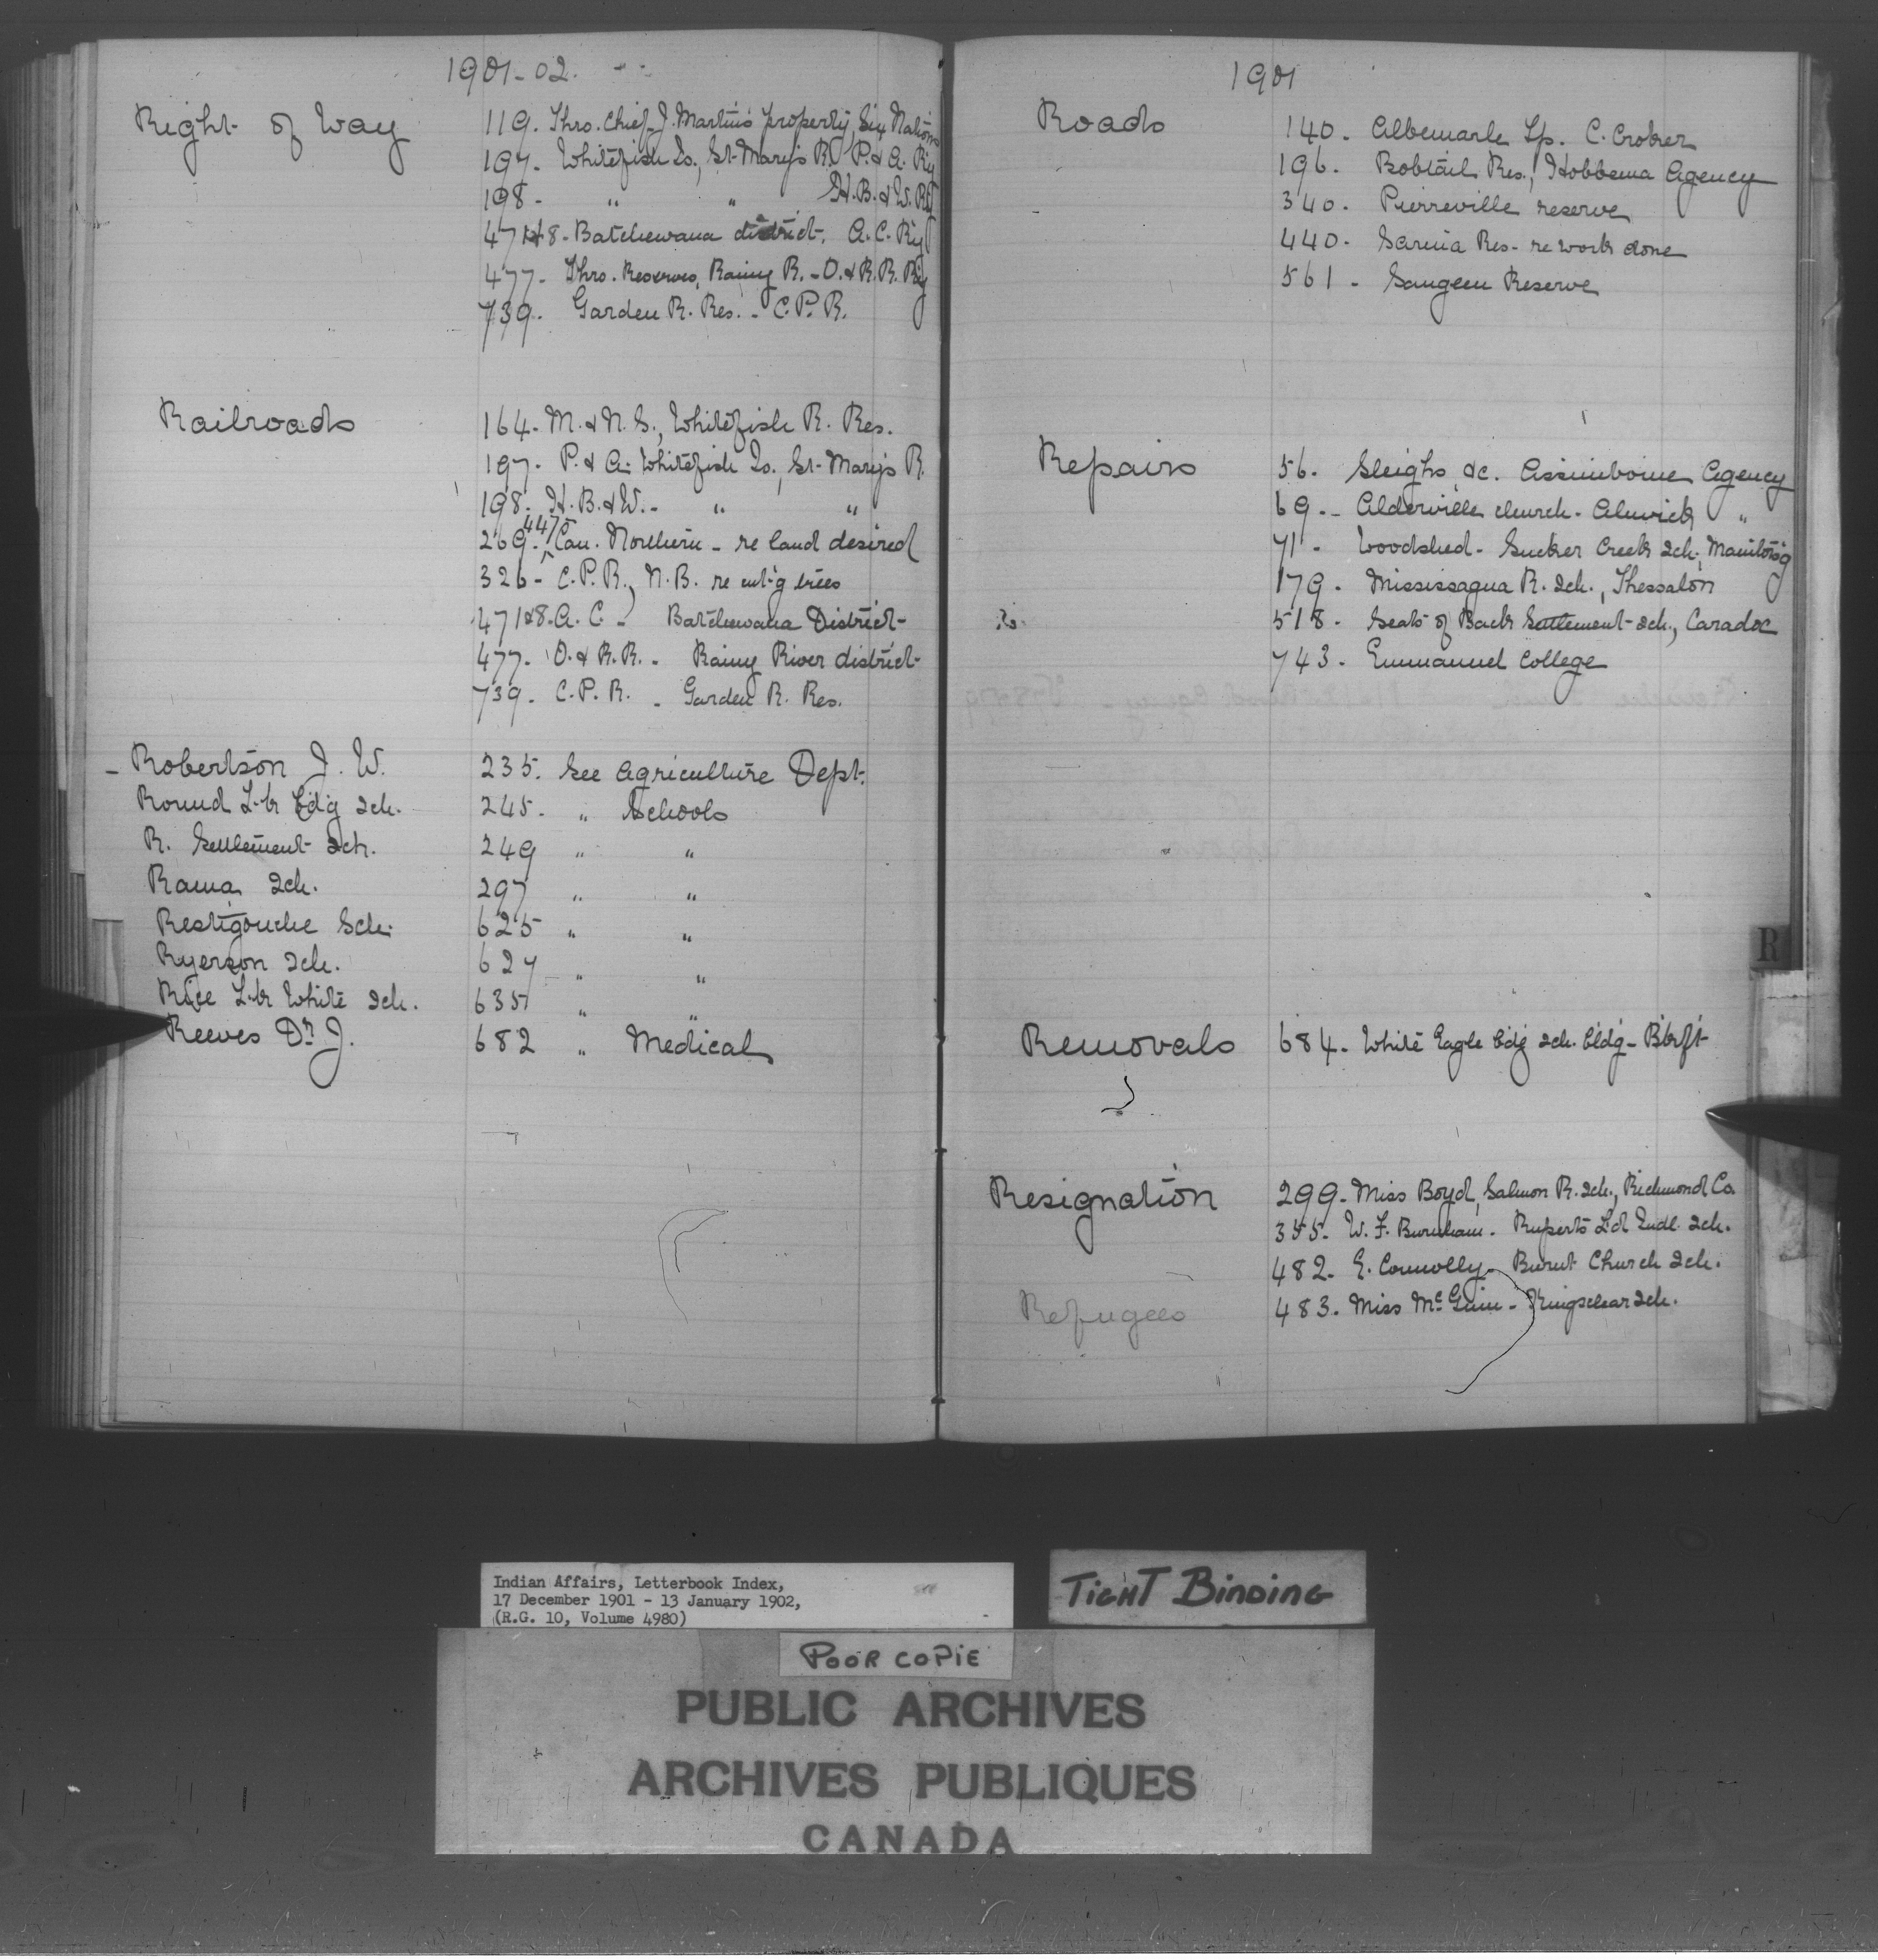 1901-02.
Right of Way
119. Thro. Chief J. Martin's property, Six Nations
197. Whitefish Is., St. Mary's R. P. & A. Ry
198 - " " H. B. & W. Ry
471&8 - Batchewana district, A. C. Ry
477 - Thro. Reserves, Rainy R. - O. & R. R. Ry
739. Garden R. Res. - C. P. R.
Railroads
164 - M. & N. S., Whitefish R. Res.
197. P. & A. Whitefish Is. St. Mary's R.
198. H. B. & W. - " "
269. 447 Can. Northern - re land desired
326 - C. P. R., N. B. re cut'g trees
471&8 - A. C. - Batchewana District
477 - O. & R. R. - Rainy River district
739 - C. P. R. - Garden R. Res.
- Robertson J. W. 235. See Agriculture Dept.
Round L-k b'd'g Sch. 245. " Schools
R. Settlement Sch. 249 " "
Rama Sch. 297 " "
Restigouche Sch. 625 " "
Ryerson Sch. 627 " "
Rice L-k White Sch. 635 " "
Reeves Dr J. 682 " Medical
1901
Roads
140 - Albemarle Tp. C. Croker
196. Bobtail Res., Hobbema Agency
340. Pierreville reserve
440. Sarnia Res - re work done
561 - Saugeen Reserve
Repairs
56. Sleighs &c. Assiniboine Agency
69. - Alderville church - Alnwick "
71 - Woodshed - Sucker Creek Sch., Manito'g
179. Mississagua R. Sch., Thessalon
518. Seats of Back Settlement Sch., Caradoc
743. Emmanuel College
R
Removals 684. White Eagle b'd'g Sch. bldg - B'kf't
Resignation
299 - Miss Boyd, Salmon R. Sch., Richmond Co.
355. W. F. Burnham - Ruperts L'd Indl. Sch.
482. E. Connolly - Burnt Church Sch.
Refugees
483. Miss McGinn - Kingsclear Sch.
Indian Affairs, Letterbook Index,
17 December 1901 - 13 January 1902,
(R.G. 10, Volume 4980)
TIGHT BINDING
POOR COPIE
PUBLIC ARCHIVES
ARCHIVES PUBLIQUES
CANADA